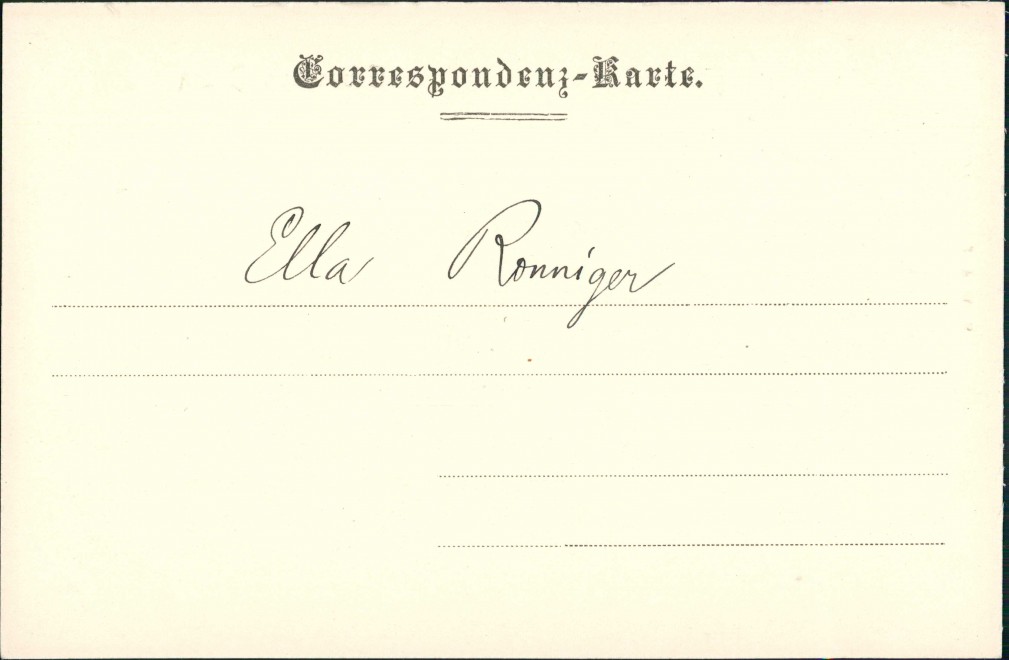 Correspondenz-Karte.
Ella Ronniger